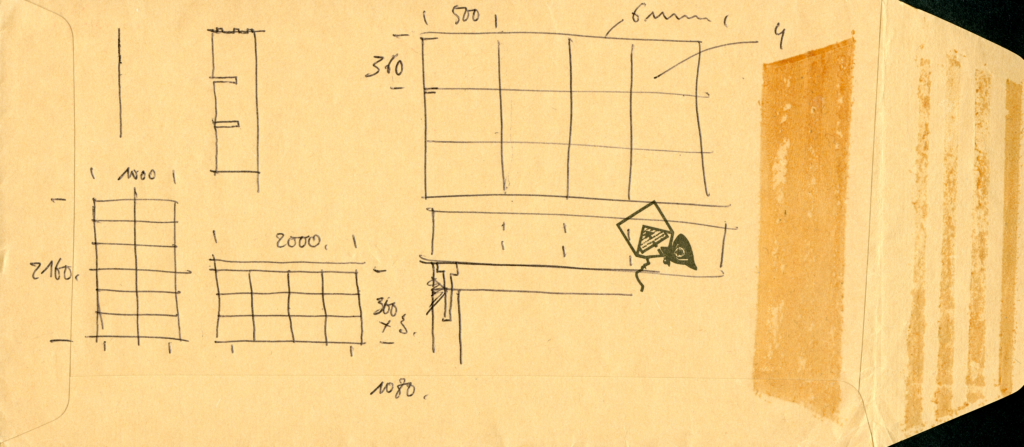 500
6mm
4
360
1000
2160.
2000.
360
x 3.
1080.